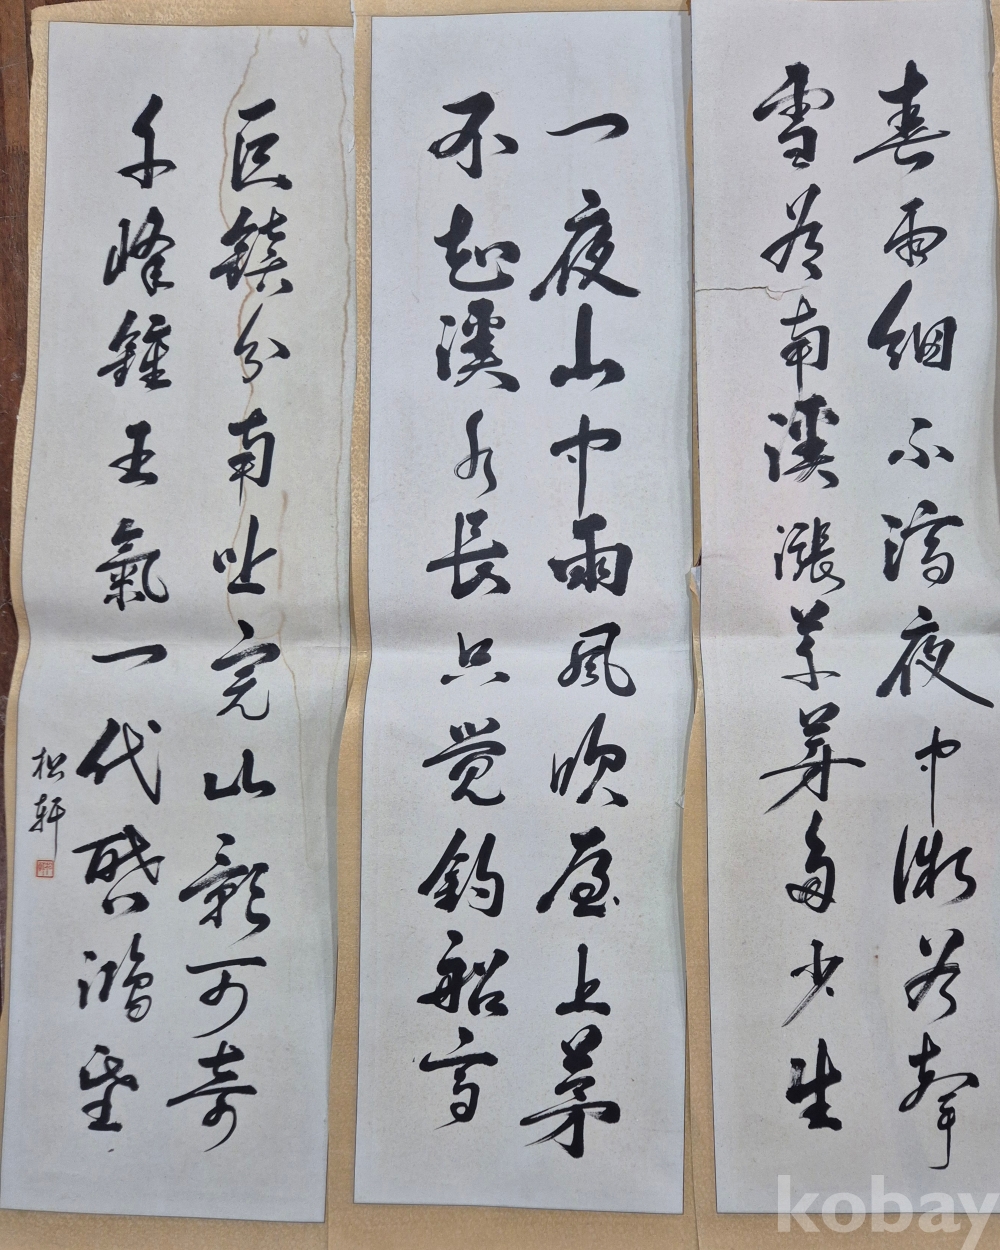 春雨細不滴夜中微有聲
雪盡南溪漲草芽多少生
一夜山中雨風吹屋上茅
不知溪水長只覺釣船高
巨鎮分南北完山最可奇
千峰鍾王氣一代啓鴻基
松軒
kobay